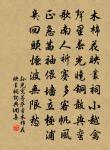 木棉花映叢祠小越禽
聲裏春光曉銅鼓與蠻
歌南人祈賽多客帆風
正急茜袖偎牆立極浦
幾回頭煙波無限愁
孫光憲菩薩蠻木棉花
映叢祠小